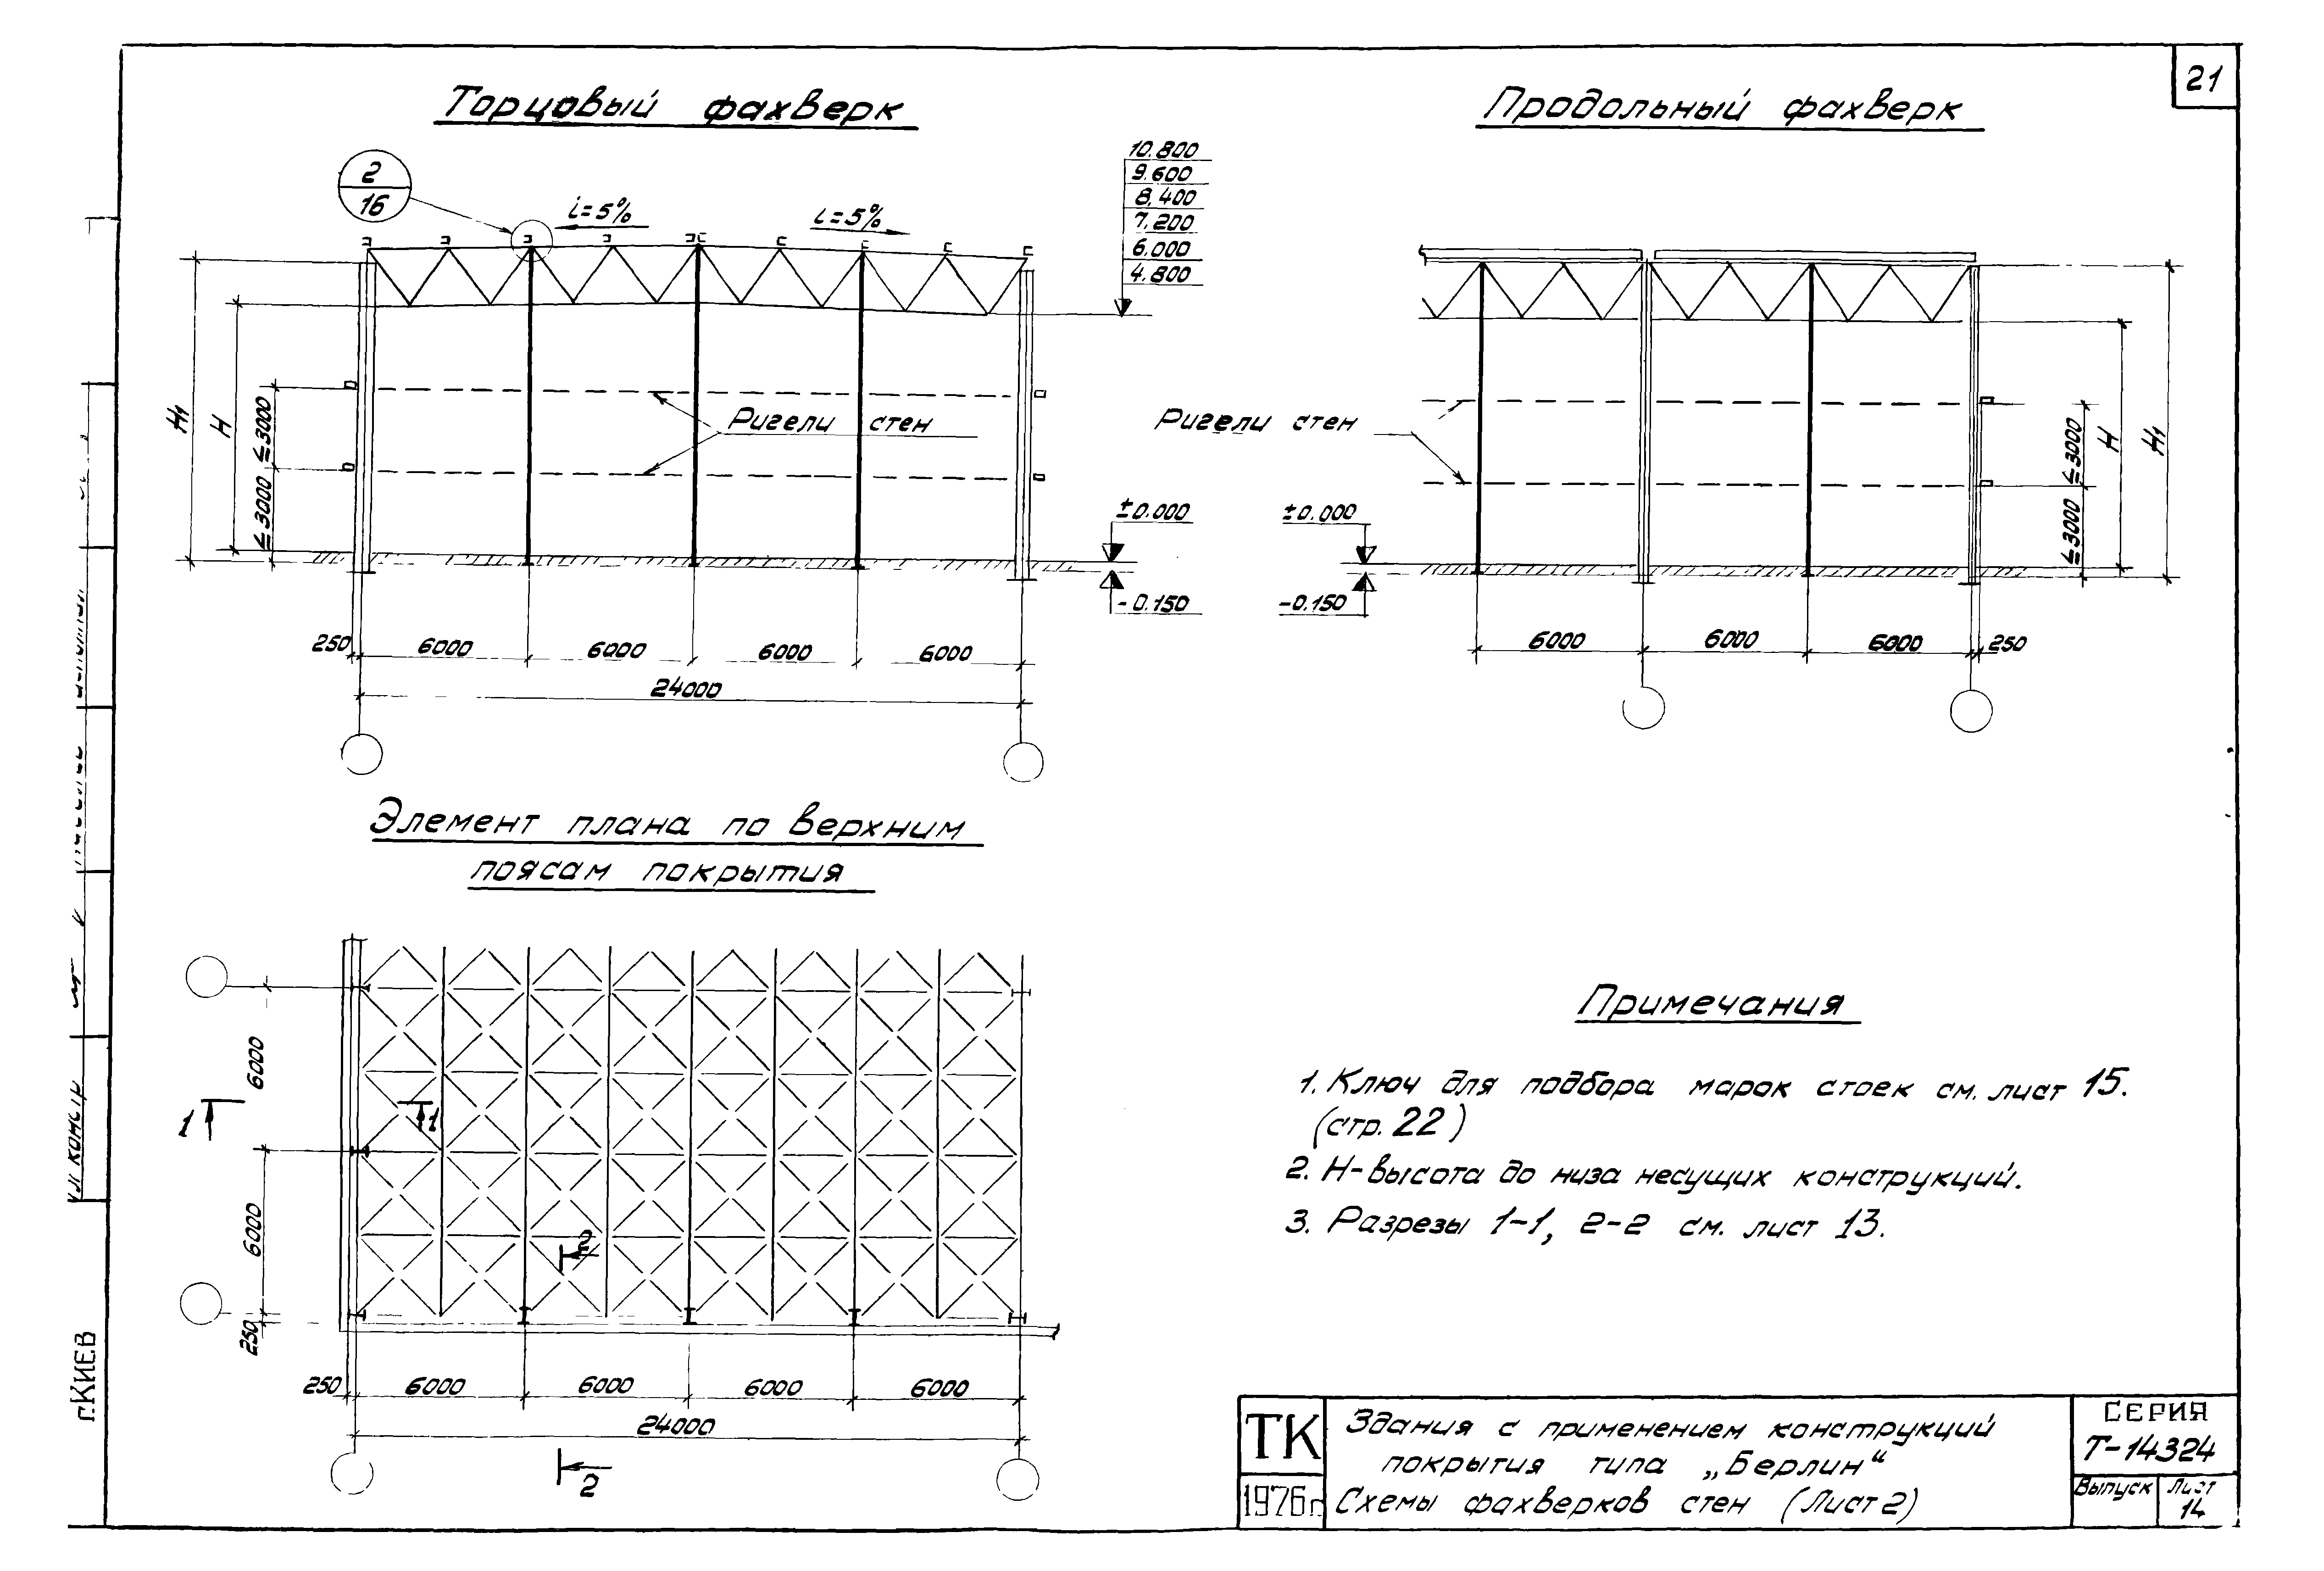 21
Торцовый фахверк
Продольный фахверк
2
16
i=5%
i=5%
10.800
9.600
8.400
7.200
6.000
4.800
H1
H
≤3000
≤3000
Ригели стен
±0.000
-0.150
250
6000
6000
6000
6000
24000
Ригели стен
±0.000
-0.150
≤3000
≤3000
H
H1
6000
6000
6000
250
Элемент плана по верхним
поясам покрытия
6000
6000
250
1
1
2
250
6000
6000
6000
6000
24000
2
Примечания
1. Ключ для подбора марок стоек см. лист 15.
(стр. 22)
2. Н-высота до низа несущих конструкций.
3. Разрезы 1-1, 2-2 см. лист 13.
г.Киев
ТК
1976г
Здания с применением конструкций
покрытия типа „Берлин“
Схемы фахверков стен (Лист 2)
СЕРИЯ
Т-14324
Выпуск
Лист
14